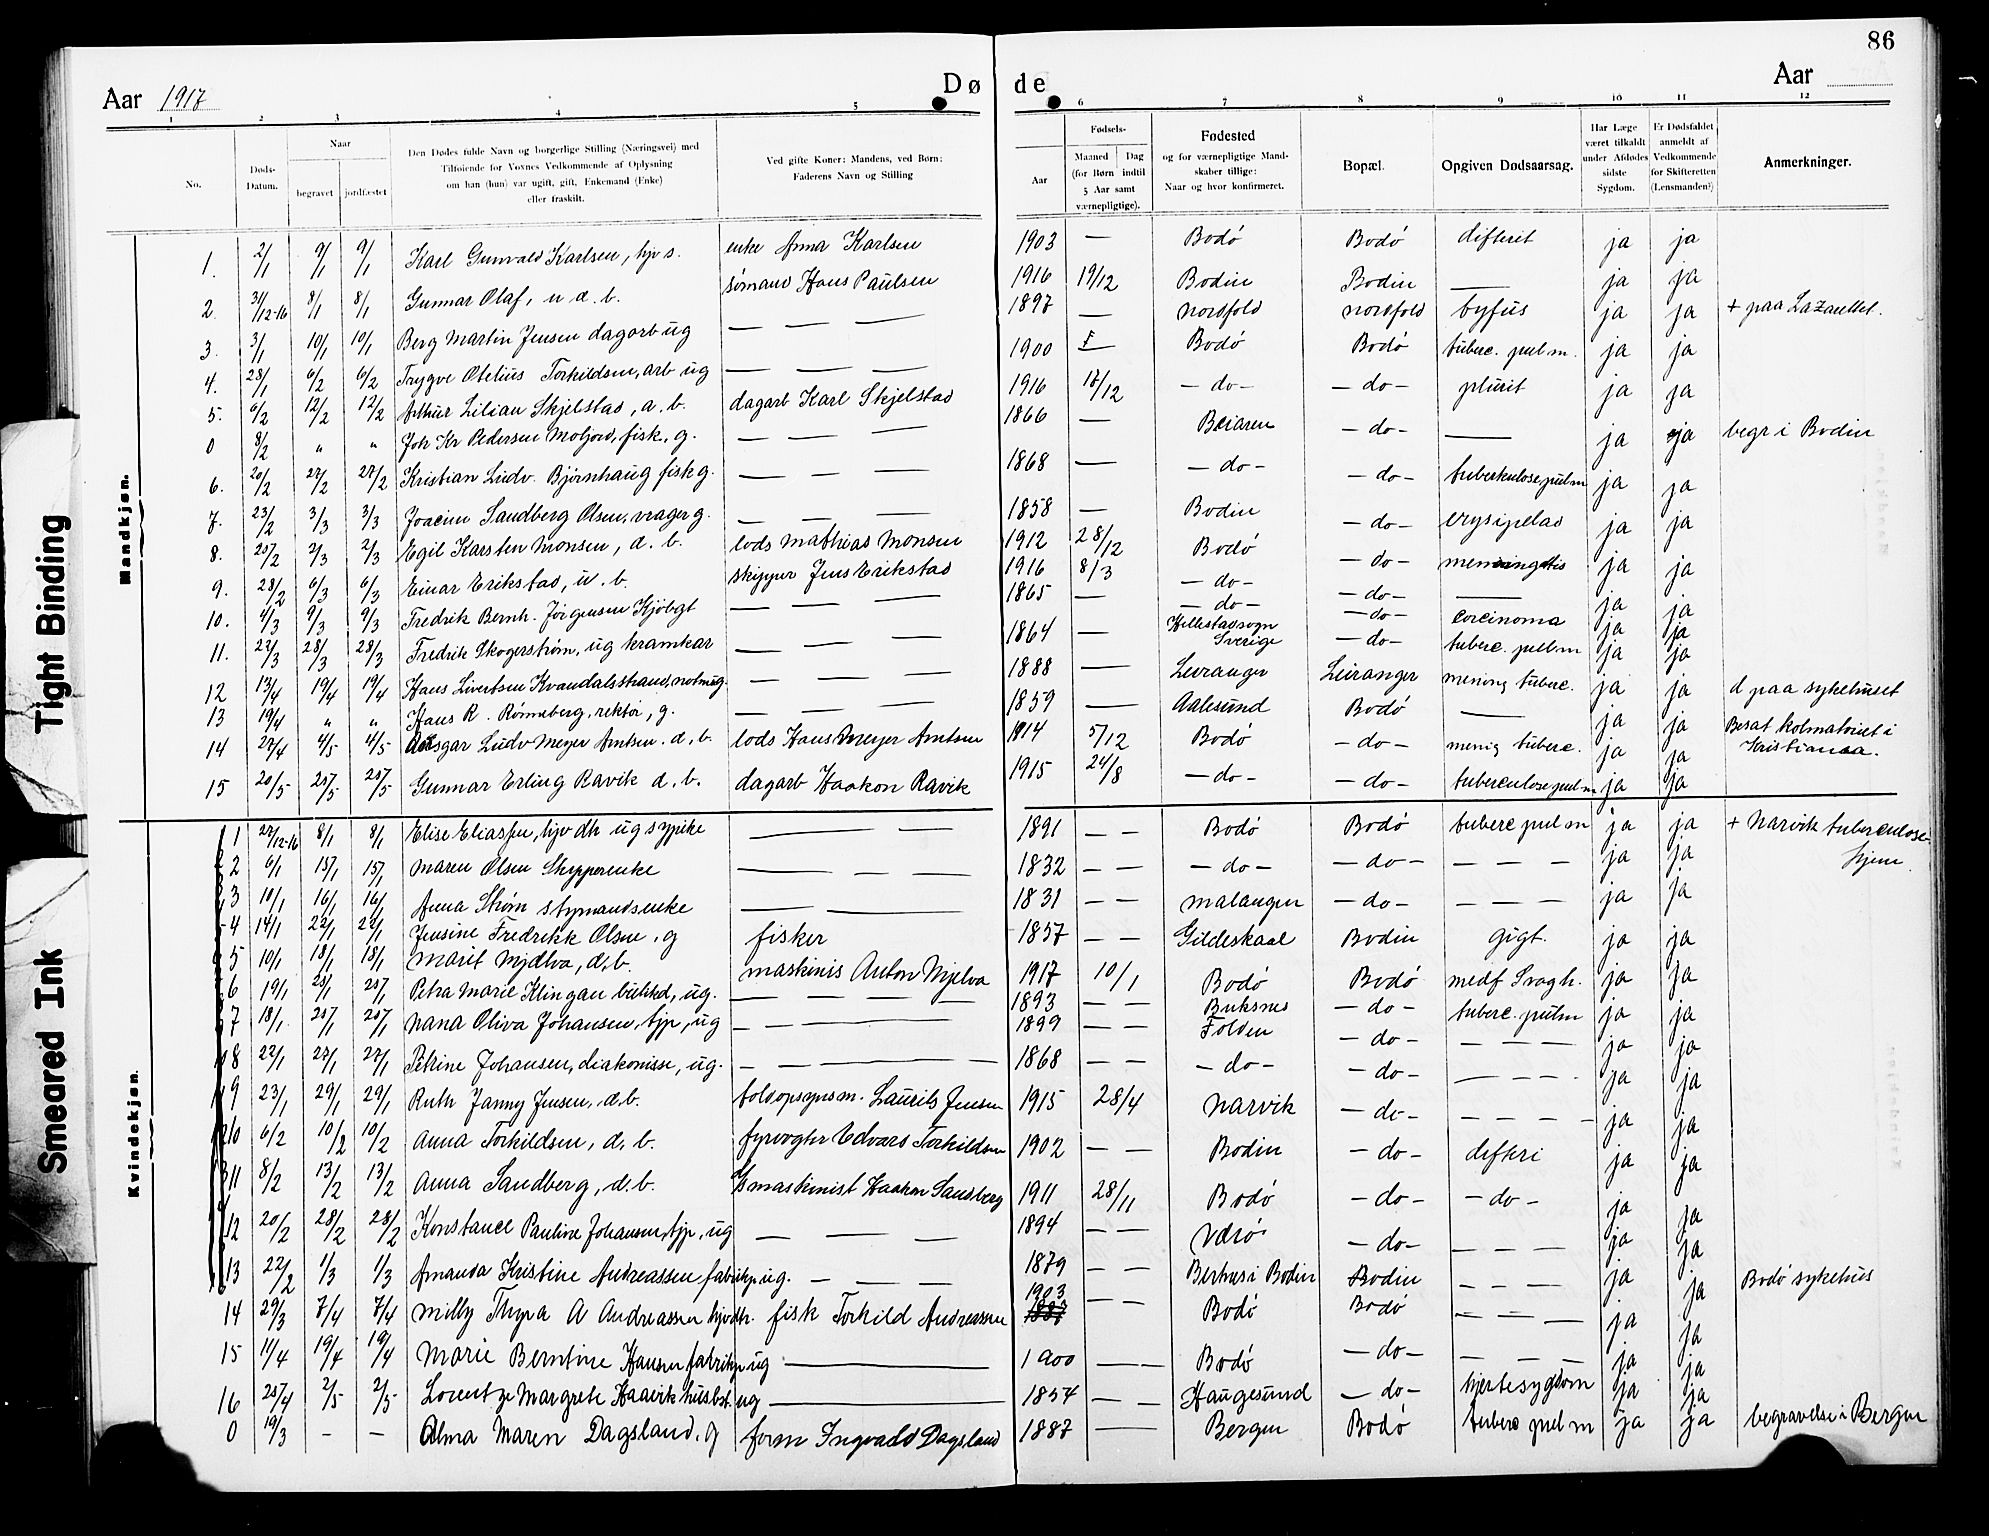 86
Aar 1917
Døde
Aar
1 2 3 4 5 6 7 8 9 10 11 12
No.
Døds-Datum.
Naar
begravet
jordfæstet
Den Dødes fulde Navn og borgerlige Stilling (Næringsvei) med
Tilføiende for Voxnes Vedkommende af Oplysning
om han (hun) var ugift, gift, Enkemand (Enke)
eller fraskilt.
Ved gifte Koner: Mandens, ved Børn:
Faderens Navn og Stilling
Fødsels-
Aar
Maaned Dag
(for Børn indtil
5 Aar samt
værnepligtige).
Fødested
og for værnepligtige Mand-
skaber tillige:
Naar og hvor konfirmeret.
Bopæl.
Opgiven Dødsaarsag.
Har Læge
været tilkaldt
under Afdødes
sidste
Sygdom.
Er Dødsfaldet
anmeldt af
Vedkommende
for Skifteretten
(Lensmanden?)
Anmerkninger.
Mandkjøn.
1. 2/1 9/1 9/1 Karl Gunvald Karlsen, hjv s. enke Anna Karlsen 1903 — Bodø Bodø difterit ja ja
2. 31/12-16 8/1 8/1 Gunnar Olaf, u æ. b. sømand Hans Paulsen 1916 19/12 Bodin Bodin — ja ja
3. 3/1 10/1 10/1 Berg Martin Jensen dagarb ug — — — 1897 — Nordfold Nordfold tyfus ja ja + paa Lazarettet.
4. 28/1 6/2 6/2 Trygve Otelius Torkildsen, arb ug — — — 1900 — Bodø Bodø tuberc. pulm. ja ja
5. 6/2 12/2 12/2 Arthur Lilian Skjelstad, æ. b. dagarb Karl Skjelstad 1916 17/12 — do — — do — plurit ja ja
0 8/2 " " Joh Kr Pedersen Moljord, fisk, g. — — — 1866 — Beiaren — do — — ja ja begr i Bodin
6. 20/2 27/2 27/2 Kristian Ludv. Bjørnhaug fisk g. — — — 1868 — — do — — do — tuberkulose pulm ja ja
7. 23/2 3/3 3/3 Joacim Sandberg Olsen, vrager g. — — — 1858 — Bodin — do — erysipelas ja ja
8. 25/2 2/3 2/3 Egil Karsten Monsen, æ. b. lods Mathias Monsen 1912 28/12 Bodø — do — meningitis ja ja
9. 28/2 6/3 6/3 Einar Erikstad, u. b. skipper Jens Erikstad 1916 8/3 — do — — do — — ja ja
10. 4/3 9/3 9/3 Fredrik Bernh. Jørgensen Kjøbgt — — — 1865 — — do — — do — corcinoma ja ja
11. 22/3 28/3 28/3 Fredrik Skogerstrøm, ug kramkar — — — 1864 — Hellestadsogn Sverige — do — tuberc. pulm ja ja
12 13/4 19/4 19/4 Hans Livertsen Kvandalsstrand, notm ug. — — — 1888 — Leiranger Leiranger mening tuberc. ja ja d paa sykehuset
13 19/4 " " Hans R. Rønneberg, rektor, g. — — — 1859 — Aalesund Bodø — ja ja Besat kolmatoriet i
Kristiania.
14 27/4 4/5 4/5 Ansgar Ludv Meyer Arntsen. æ. b. lods Hans Meyer Arntsen 1914 5/12 Bodø — do — menig tuberc. ja ja
15 20/5 25/5 25/5 Gunnar Erling Ravik æ. b. dagarb Haakon Ravik 1915 24/8 — do — — do — tuberculose pulm ja ja
Kvindekjøn.
1 27/12-16 8/1 8/1 Elise Eliassen, hjv dtr ug sypike — — — 1891 — — Bodø Bodø tuberc pulm ja ja + Narvik tuberculose-
hjem
2 6/1 15/1 15/1 Maren Olsen Skipperenke — — — 1832 — — — do — — do — — — — ja ja
3 10/1 16/1 16/1 Anna Strøm styrmandsenke — — 1831 — — Malangen — do — — — — ja ja
4 14/1 22/1 22/1 Jensine Fredrikke Olsen, g fisker 1857 — — Gildeskaal Bodin gigt. ja ja
5 10/1 18/1 18/1 Marit Mjelva, æ. b. maskinis Anton Mjelva 1917 10/1 Bodø Bodø medf Svagh. ja ja
6 19/1 25/1 25/1 Petra Marie Klingan butikd, ug. — — — — 1893 — — Buksnes — do — tuberc. pulm ja ja
7 18/1 25/1 25/1 Nana Oliva Johansen, tjp, ug — — — 1899 — — Folden — do — — — — ja ja
8 22/1 27/1 27/1 Petrine Johansen, diakonisse, ug. — — — 1868 — — — do — — do — — — — ja ja
9 23/1 29/1 29/1 Ruth Janny Jensen, æ. b. toldopsynsm. Laurits Jensen 1915 28/4 Narvik — do — — — — ja ja
10 6/2 10/2 10/2 Anna Torkildsen, æ. b. fyrvogter Edvard Torkildsen 1902 — — Bodin — do — difteri ja ja
11 8/2 13/2 13/2 Anna Sandberg, æ. b. maskinist Haakon Sandberg 1911 28/11 Bodø — do — — do — ja ja
12 20/2 28/2 28/2 Konstance Pauline Johansen, tjp, ug — — — 1894 — — Værø — do — — — — ja ja
13 22/2 1/3 1/3 Amanda Kristine Andreassen, fabrikp ug. — — — 1879 — — Bertnes i Bodin Bodin — — — ja ja Bodø sykehus
14 29/3 7/4 7/4 Milly Thyra A Andreassen hjvdtr. fisk Torkild Andreassen 1903 — — Bodø Bodø — — — ja ja
15 11/4 19/4 19/4 Marie Berntine Hansen fabrikp ug — 1900 — — Bodø — do — — — — ja ja
16 25/4 2/5 2/5 Lorentze Margrete Haavik husbst. ug — 1854 — — Haugesund — do — hjertesygdom ja ja
0 19/3 — — Alma Maren Dagsland, g form Ingvald Dagsland 1887 — Bergen Bodø tuberc pulm ja ja begravelse i Bergen
Tight Binding
Smeared Ink